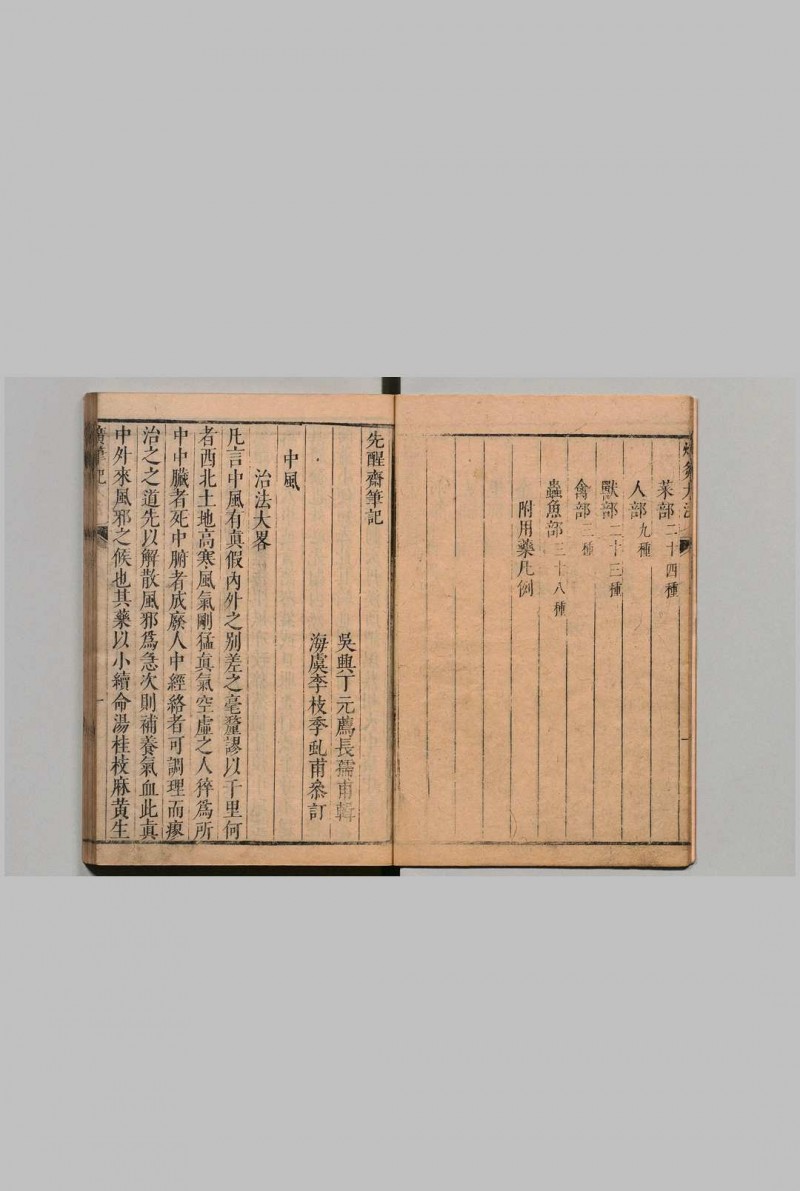 炮炙大法
菜部二十四種
人部九種
獸部二十三種
禽部三種
蟲魚部三十八種
附用藥凡例
先醒齋筆記
吳興丁元薦長孺甫輯
海虞李枝季虬甫叅訂
中風
治法大畧
凡言中風有真假內外之別差之毫釐謬以千里何
者西北土地高寒風氣剛猛真氣空虛之人猝爲所
中中臟者死中腑者成廢人中經絡者可調理而瘳
治之之道先以解散風邪爲急次則補養氣血此真
中外來風邪之候也其藥以小續命湯桂枝麻黃生
廣筆記
一